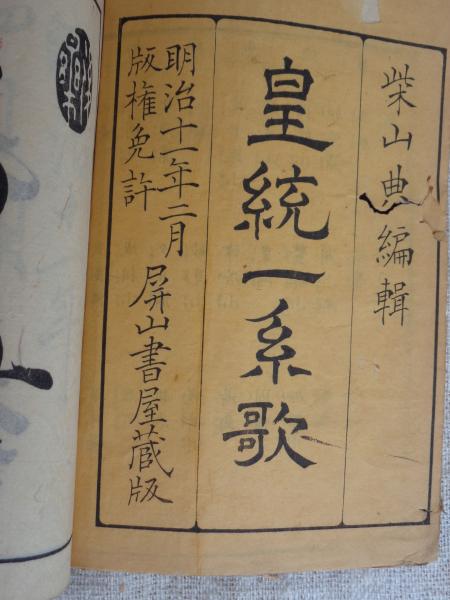 柴山典編輯
皇統一系歌
明治十一年二月
版権免許
屏山書屋蔵版